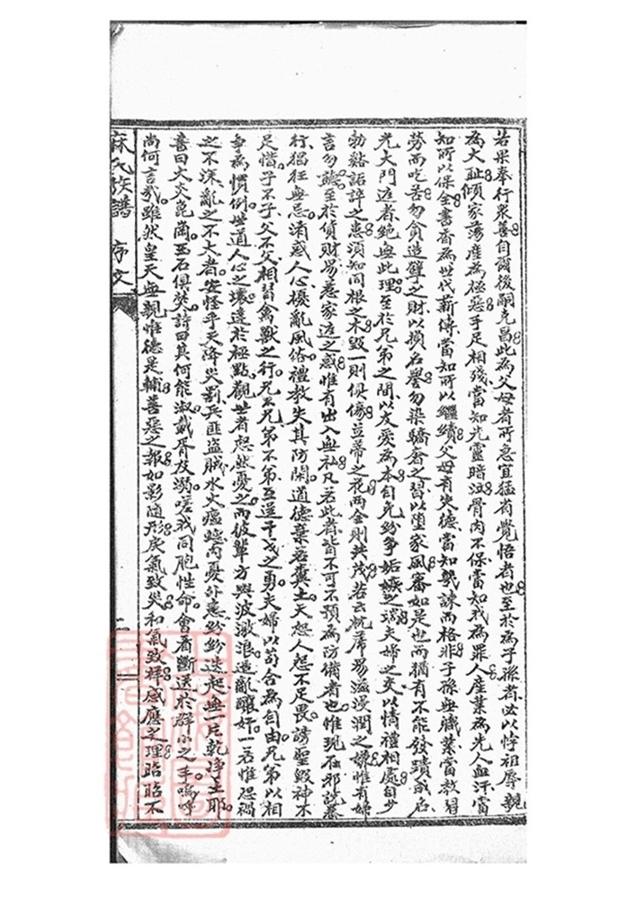 若果奉行衆善自爾後嗣克昌此為父母者所急宜猛省覺悟者也至於為子孫者必以悖祖辱親
為大恥傾家蕩產為極惡手足相殘當知先靈暗泣骨肉不保當知我為罪人產業為先人血汗當
知所以保全書香為世代薪傳當知所以繼續父母有失德當知幾諫而格非子孫無職業當教習
勞而吃苦勿貪造孽之財以損名譽勿染驕奢之習以墜家風審如是也而猶有不能發蹟成名
光大門逵者絕無此理至於兄弟之間以友愛為本自無紛爭妬嫉之禍夫婦之交以情禮相處自少
勃谿詬誶之患須知同根之木毀一則俱傷並蒂之花兩全則共茂若云枕蓆易溢浸潤之嫌惟有婦
言勿聽至於貨財易惹家庭之惑惟有出入無私凡若此者皆不可不預為防備者也惟現在邪說暴
行猖狂無忌淆惑人心擾亂風俗禮教失其防閑道德棄若糞土天怒人怨不足畏謗聖毀神不
足惜子不子父不父相習禽獸之行兄不兄弟不弟互逞干戈之勇夫婦以苟合為自由兄弟以相
爭為慣例世道人心之壞達於極點觀世者怒然憂之而彼輩方興波激浪造亂釀奸一若惟恐禍
之不深亂之不大者安怪乎天降災劉兵匪盜賊水火瘟蝗內憂外患紛紛迭起無一片乾淨土耶
書曰火炎崑崗玉石俱焚詩曰其何能淑載胥及溺嗟我同胞性命會看斷送於群小之手嗚呼
尚何言哉雖然皇天無親惟德是輔善惡之報如影隨形戾氣致災和氣致祥感應之理昭昭不
麻氏族譜 序文 二